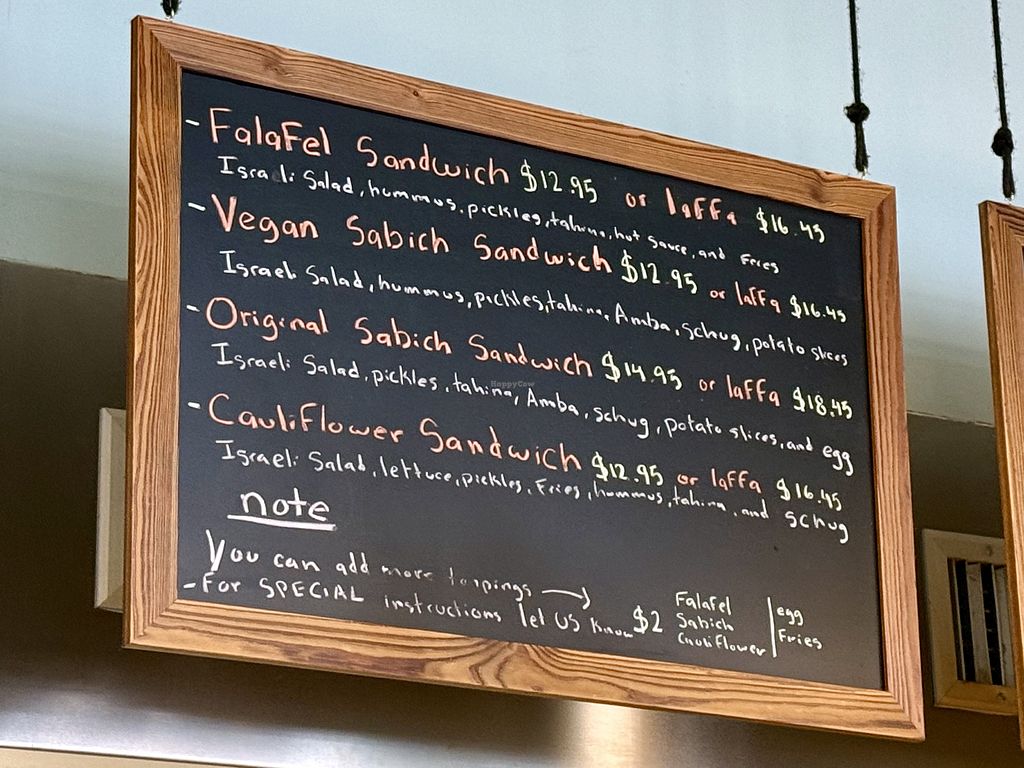 - Falafel Sandwich $12.95 or laffa $16.45
Israeli Salad, hummus, pickles, tahina, hot sauce, and Fries
- Vegan Sabich Sandwich $12.95 or laffa $16.45
Israeli Salad, hummus, pickles, tahina, Amba, schug, potato slices
- Original Sabich Sandwich $14.95 or laffa $18.45
Israeli Salad, pickles, tahina, Amba, schug, potato slices, and egg
- Cauliflower Sandwich $12.95 or laffa $16.45
Israeli Salad, lettuce, pickles, Fries, hummus, tahina, and schug
note
You can add more toppings →
- For SPECIAL instructions let us know
$2 Falafel | egg
Sabich | Fries
Cauliflower
HappyCow